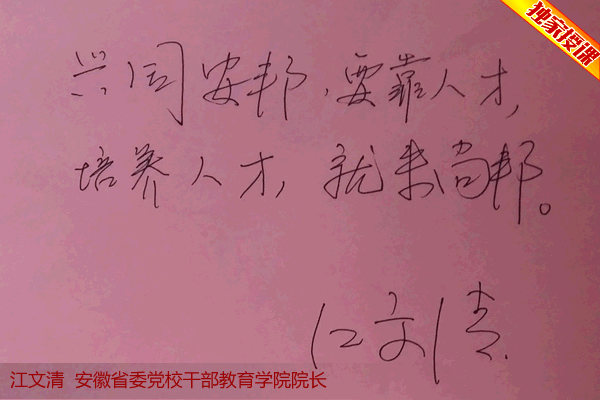 独家授课
兴国安邦,要靠人才,
培养人才,就来尚邦。
江文清
江文清 安徽省委党校干部教育学院院长